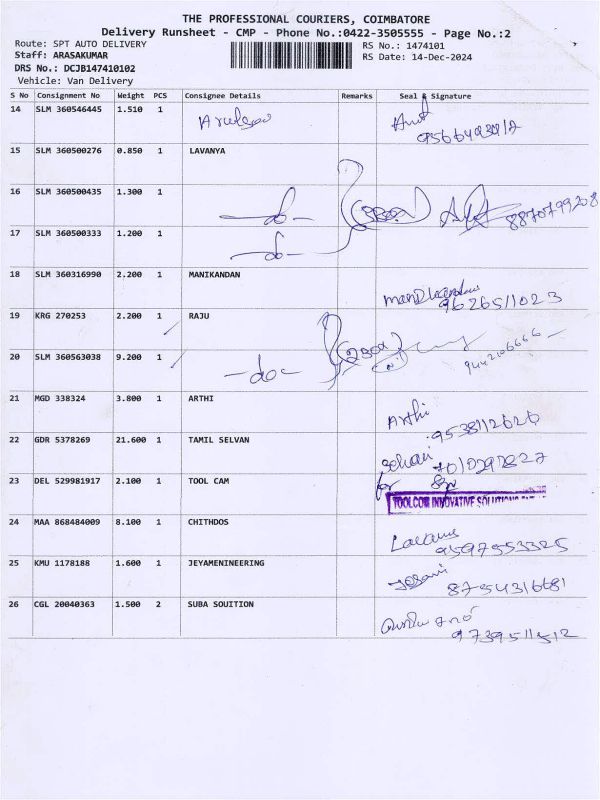 THE PROFESSIONAL COURIERS, COIMBATORE
Delivery Runsheet - CMP - Phone No.:0422-3505555 - Page No.:2
Route: SPT AUTO DELIVERY RS No.: 1474101
Staff: ARASAKUMAR RS Date: 14-Dec-2024
DRS No.: DCJB147410102
Vehicle: Van Delivery
S No Consignment No Weight PCS Consignee Details Remarks Seal & Signature
14 SLM 360546445 1.510 1
15 SLM 360500276 0.850 1 LAVANYA
16 SLM 360500435 1.300 1 -do- 8870799208
17 SLM 360500333 1.200 1 -do-
18 SLM 360316990 2.200 1 MANIKANDAN
9626511023
19 KRG 270253 2.200 1 RAJU
20 SLM 360563038 9.200 1 -do- 9442106666
21 MGD 338324 3.800 1 ARTHI Arthi
9538112626
22 GDR 5378269 21.600 1 TAMIL SELVAN
7010292827
23 DEL 529981917 2.100 1 TOOL CAM for
TOOLCOM INNOVATIVE SOLUTIONS
24 MAA 868484009 8.100 1 CHITHDOS
9597553325
25 KMU 1178188 1.600 1 JEYAMENINEERING
8754316681
26 CGL 20040363 1.500 2 SUBA SOUITION
9739511512